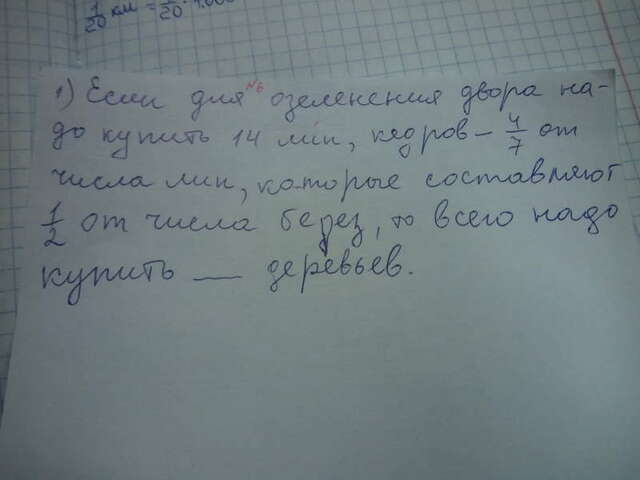 1/20 км = 1/20 · 1.000
№6
1) Если для озеленения двора на-
до купить 14 лип, кедров – 4/7 от
числа лип, которые составляют
1/2 от числа берез, то всего надо
купить __ деревьев.